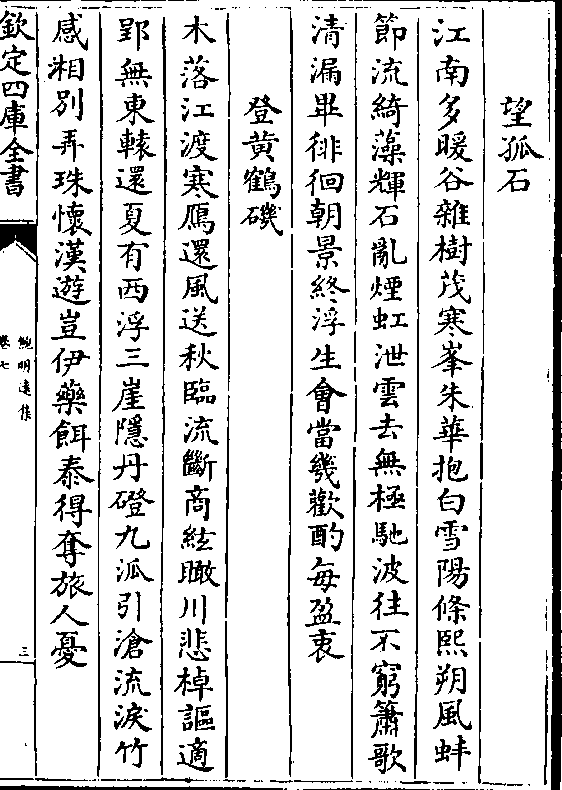 望孤石
江南多暖谷雜樹茂寒峯朱華抱白雪陽條熙朔風蚌
節流綺藻輝石亂煙虹泄雲去無極馳波往不窮簫歌
清漏畢徘徊朝景終浮生會當幾歡酌每盈衷
登黄鶴磯
木落江渡寒鴈還風送秋臨流斷商絃瞰川悲棹謳適
郢無東轅還夏有西浮三崖隱丹磴九派引滄流淚竹
感湘别弄珠懷漢遊豈伊藥餌泰得奪旅人憂
欽定四庫全書
鮑明遠集
卷七
三